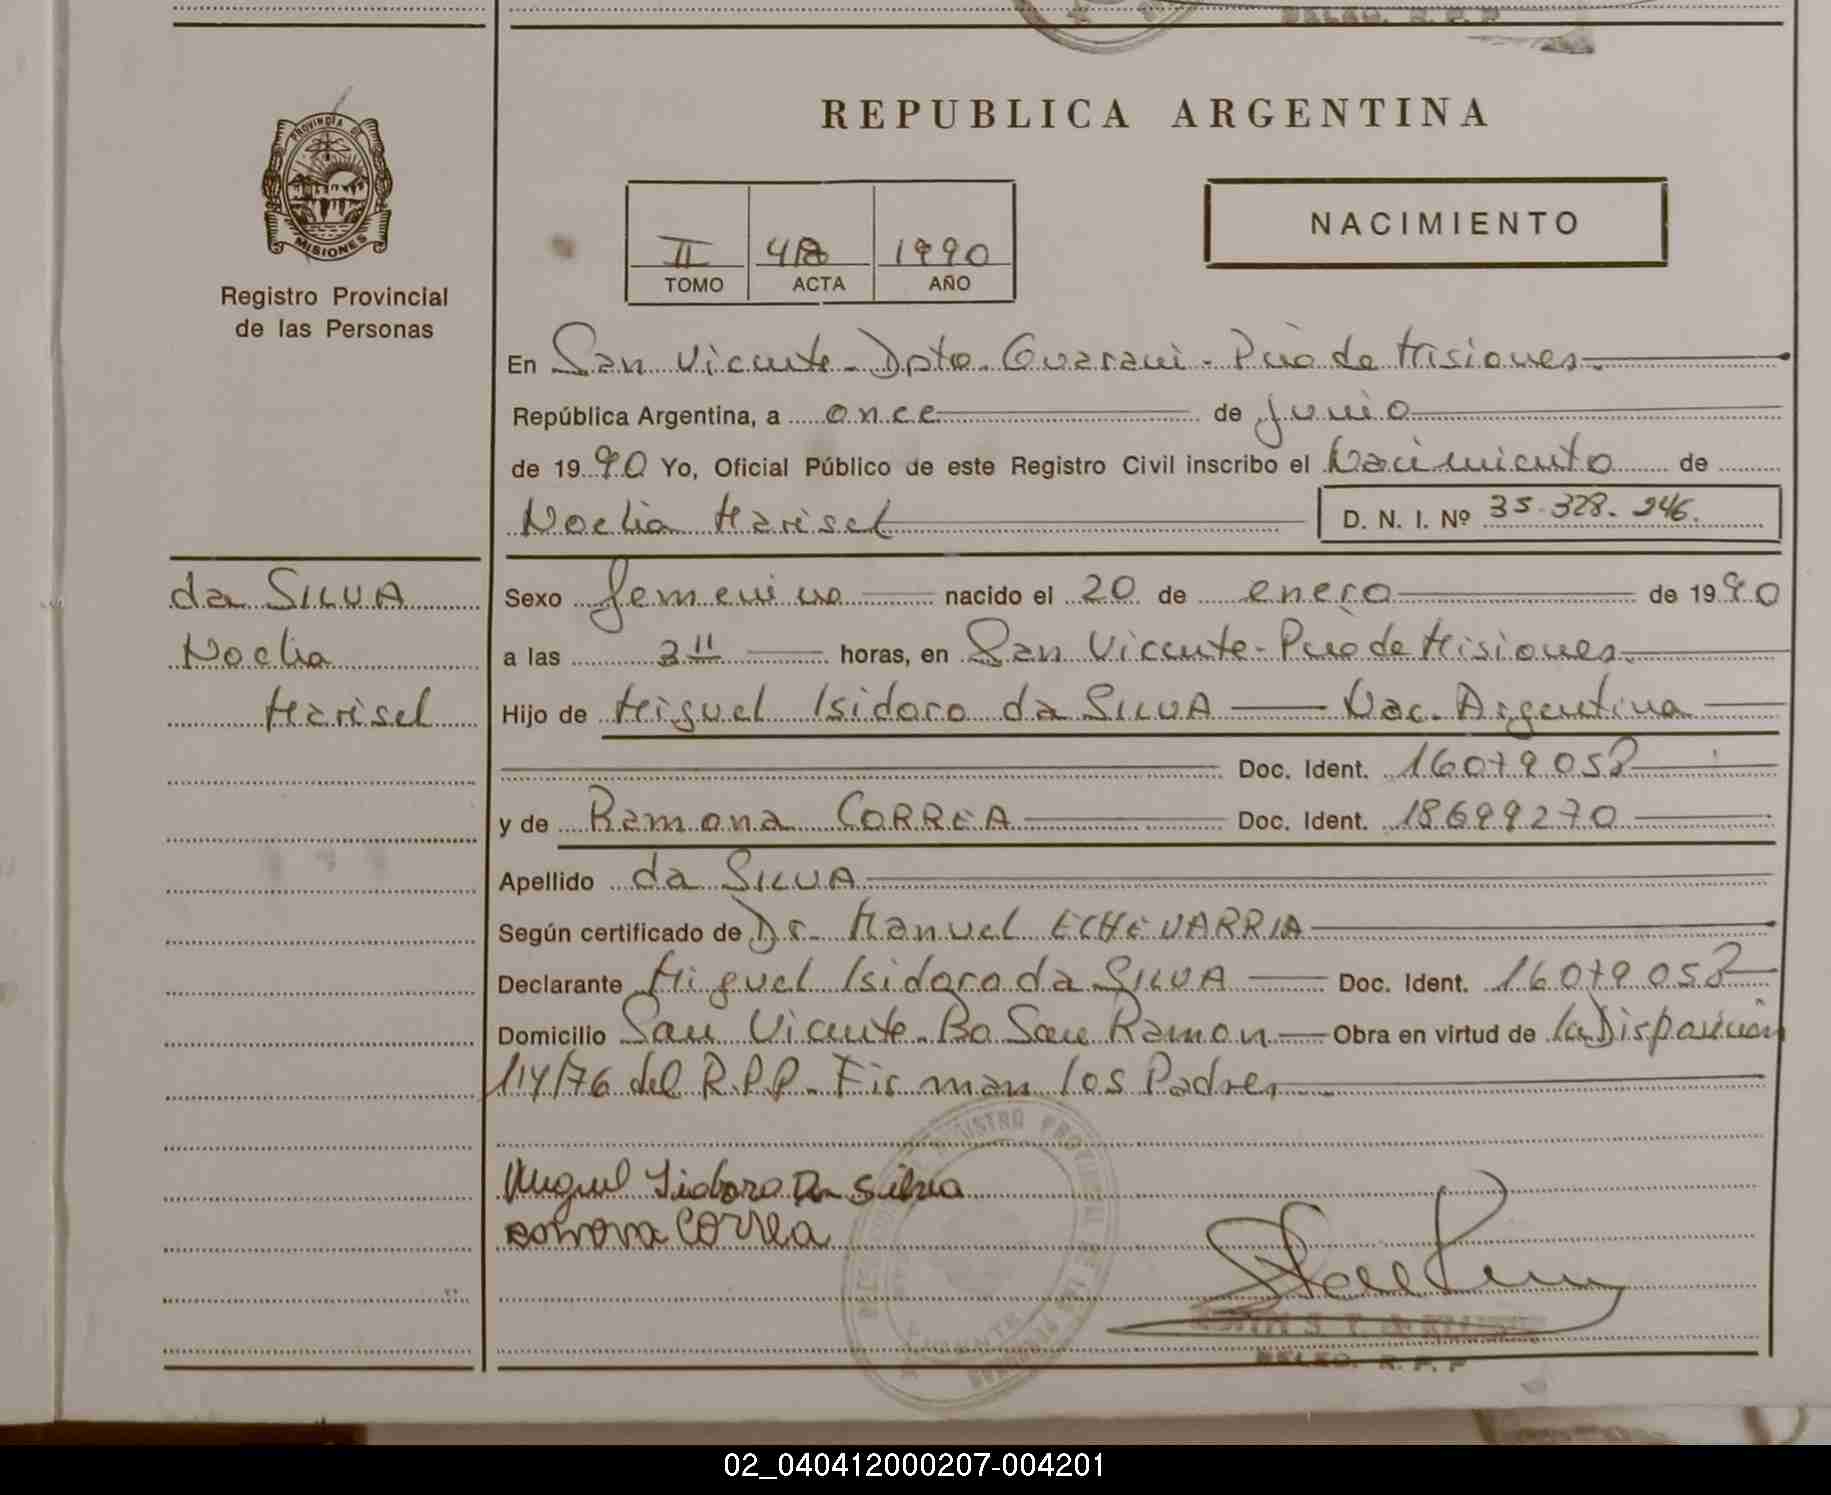 REPUBLICA ARGENTINA
PROVINCIA DE
MISIONES
Registro Provincial
de las Personas
II 1990
TOMO ACTA AÑO
NACIMIENTO
En San Vicente - Dpto. Guarani - Pcia de Misiones.
República Argentina, a once de junio
de 1990 Yo, Oficial Público de este Registro Civil inscribo el Nacimiento de
Noelia Marisel
D. N. I. Nº 35.328.246.
da SILVA
Noelia
Marisel
Sexo femenino nacido el 20 de enero de 1990
a las horas, en San Vicente - Pcia de Misiones.
Hijo de Miguel Isidoro da SILVA Nac. Argentina
Doc. Ident. 16079058
y de Ramona CORREA Doc. Ident. 18699270
Apellido da SILVA
Según certificado de Dr. Manuel ECHEVARRIA
Declarante Miguel Isidoro da SILVA Doc. Ident. 16079058
Domicilio San Vicente - Bo San Ramon Obra en virtud de la Disposición
114/76 del R.P.P - Firman los Padres
Miguel Isidoro Da Silva
Correa
DELEG. R. P. P
02_040412000207-004201